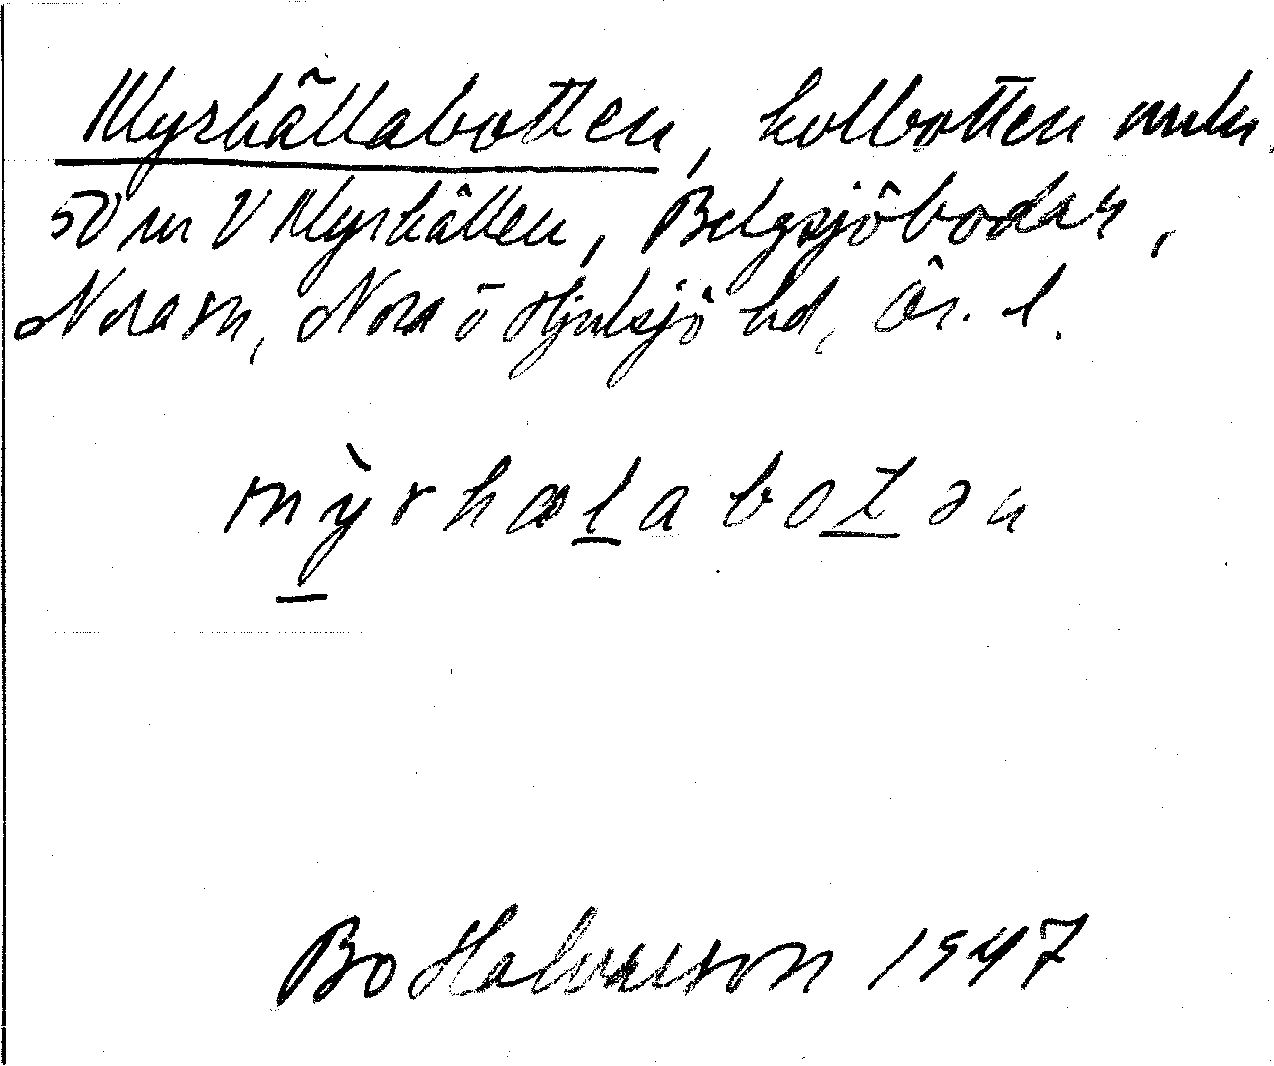 Myrhällabotten, kolbotten omkr.
50 m V Myrhällen, Belgsjöbodar,
Nora sn, Nora o Hjulsjö hd, Ör. l.
mỳrhælabotən
Bo Halvarson 1947